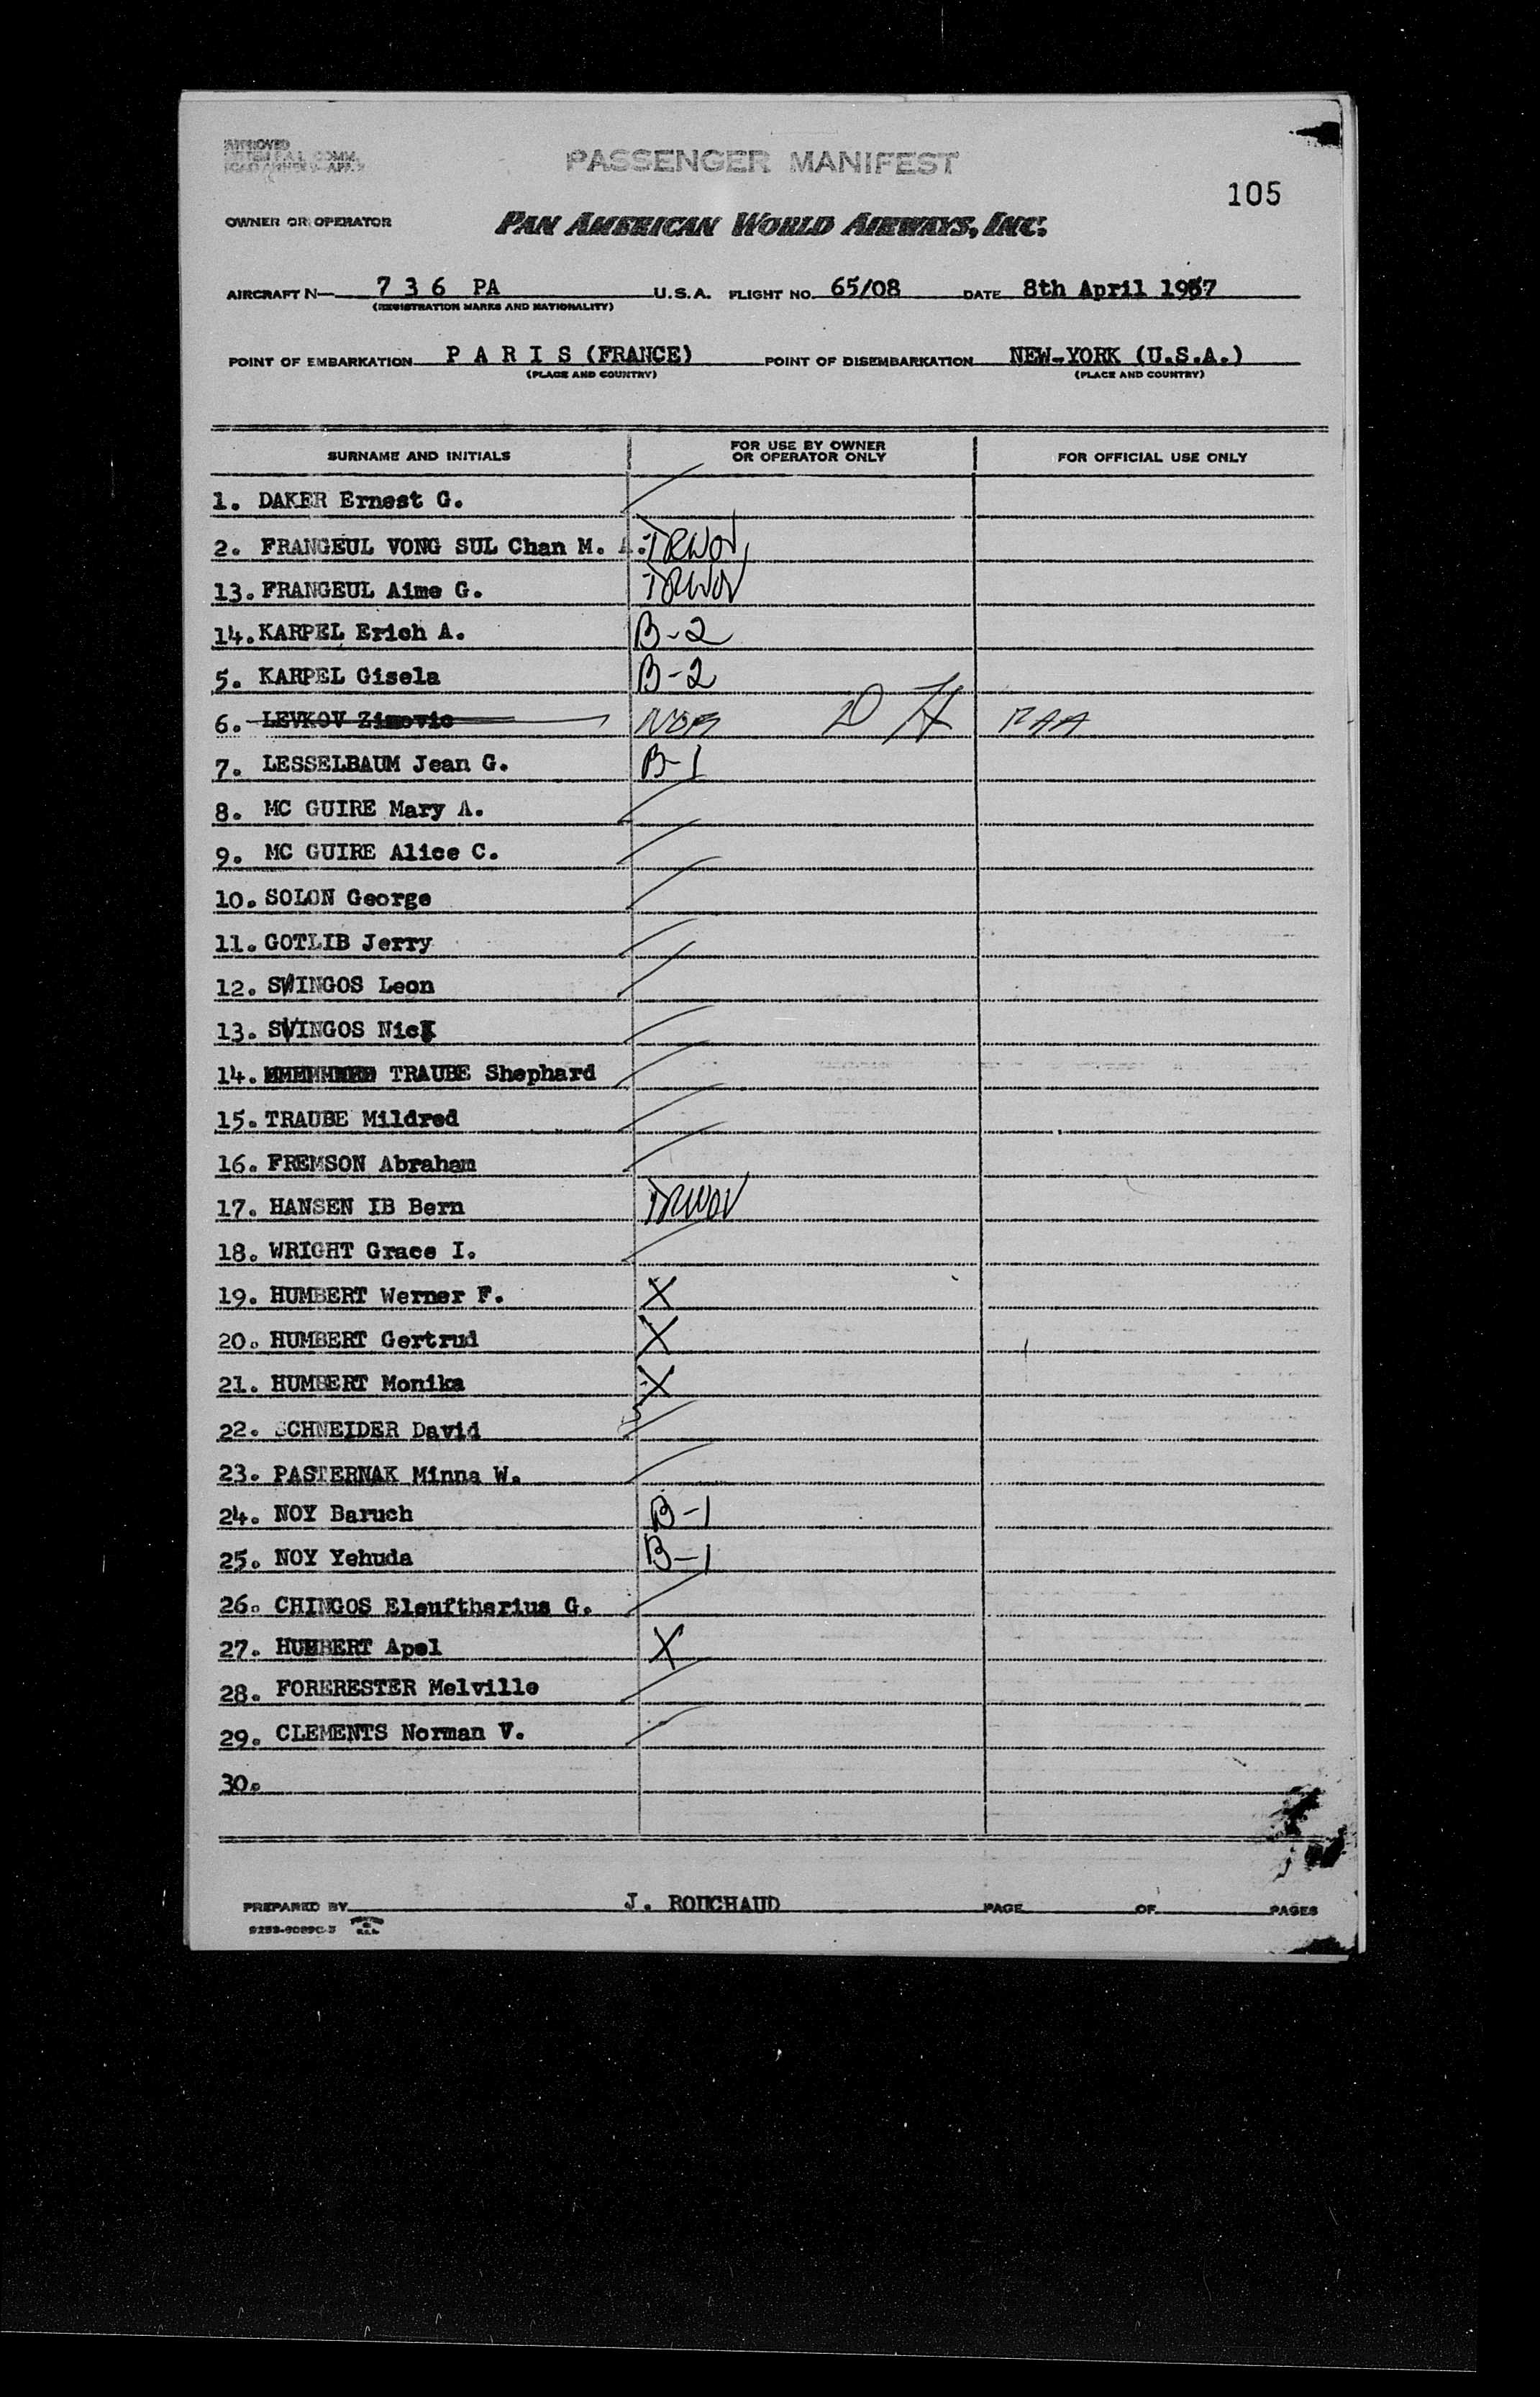 APPROVED
PASSENGER MANIFEST
105
OWNER OR OPERATOR PAN AMERICAN WORLD AIRWAYS, INC.
AIRCRAFT N— 7 3 6 PA U.S.A. FLIGHT NO. 65/08 DATE 8th April 1957
(REGISTRATION MARKS AND NATIONALITY)
POINT OF EMBARKATION P A R I S (FRANCE) POINT OF DISEMBARKATION NEW-YORK (U.S.A.)
(PLACE AND COUNTRY) (PLACE AND COUNTRY)
SURNAME AND INITIALS FOR USE BY OWNER OR OPERATOR ONLY FOR OFFICIAL USE ONLY
1. DAKER Ernest G.
2. FRANGEUL VONG SUL Chan M. A. TRWOV
13. FRANGEUL Aime G. TRWOV
14. KARPEL Erich A. B-2
5. KARPEL Gisela B-2
6. LEVKOV Zimovic NOB PAA
7. LESSELBAUM Jean G. B-1
8. MC GUIRE Mary A.
9. MC GUIRE Alice C.
10. SOLON George
11. GOTLIB Jerry
12. SWINGOS Leon
13. SWINGOS Nick
14. TRAUBE Shephard
15. TRAUBE Mildred
16. FREMSON Abraham
17. HANSEN IB Bern TRWOV
18. WRIGHT Grace I.
19. HUMBERT Werner F. X
20. HUMBERT Gertrud X
21. HUMBERT Monika X
22. SCHNEIDER David
23. PASTERNAK Minna W.
24. NOY Baruch B-1
25. NOY Yehuda B-1
26. CHINGOS Eleuftherius G.
27. HUMBERT Apel X
28. FORERESTER Melville
29. CLEMENTS Norman V.
30.
PREPARED BY J. ROUCHAUD PAGE OF PAGES